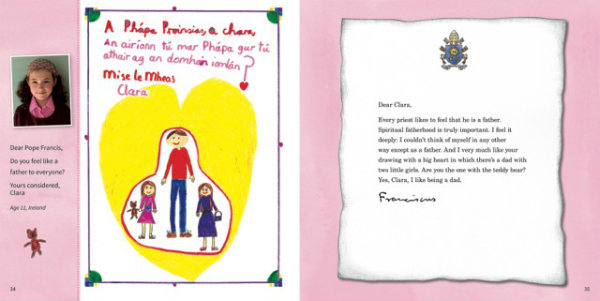 Dear Pope Francis,
Do you feel like a
father to everyone?
Yours considered,
Clara
Age 11, Ireland
34
A Phápa Proinsias, a chara,
An airíonn tú mar Phápa gur tú
athair ag an domhain iomlán?
Mise le Mheas
Clara
Dear Clara,
Every priest likes to feel that he is a father.
Spiritual fatherhood is truly important. I feel it
deeply: I couldn't think of myself in any other
way except as a father. And I very much like your
drawing with a big heart in which there's a dad with
two little girls. Are you the one with the teddy bear?
Yes, Clara, I like being a dad.
Franciscus
35